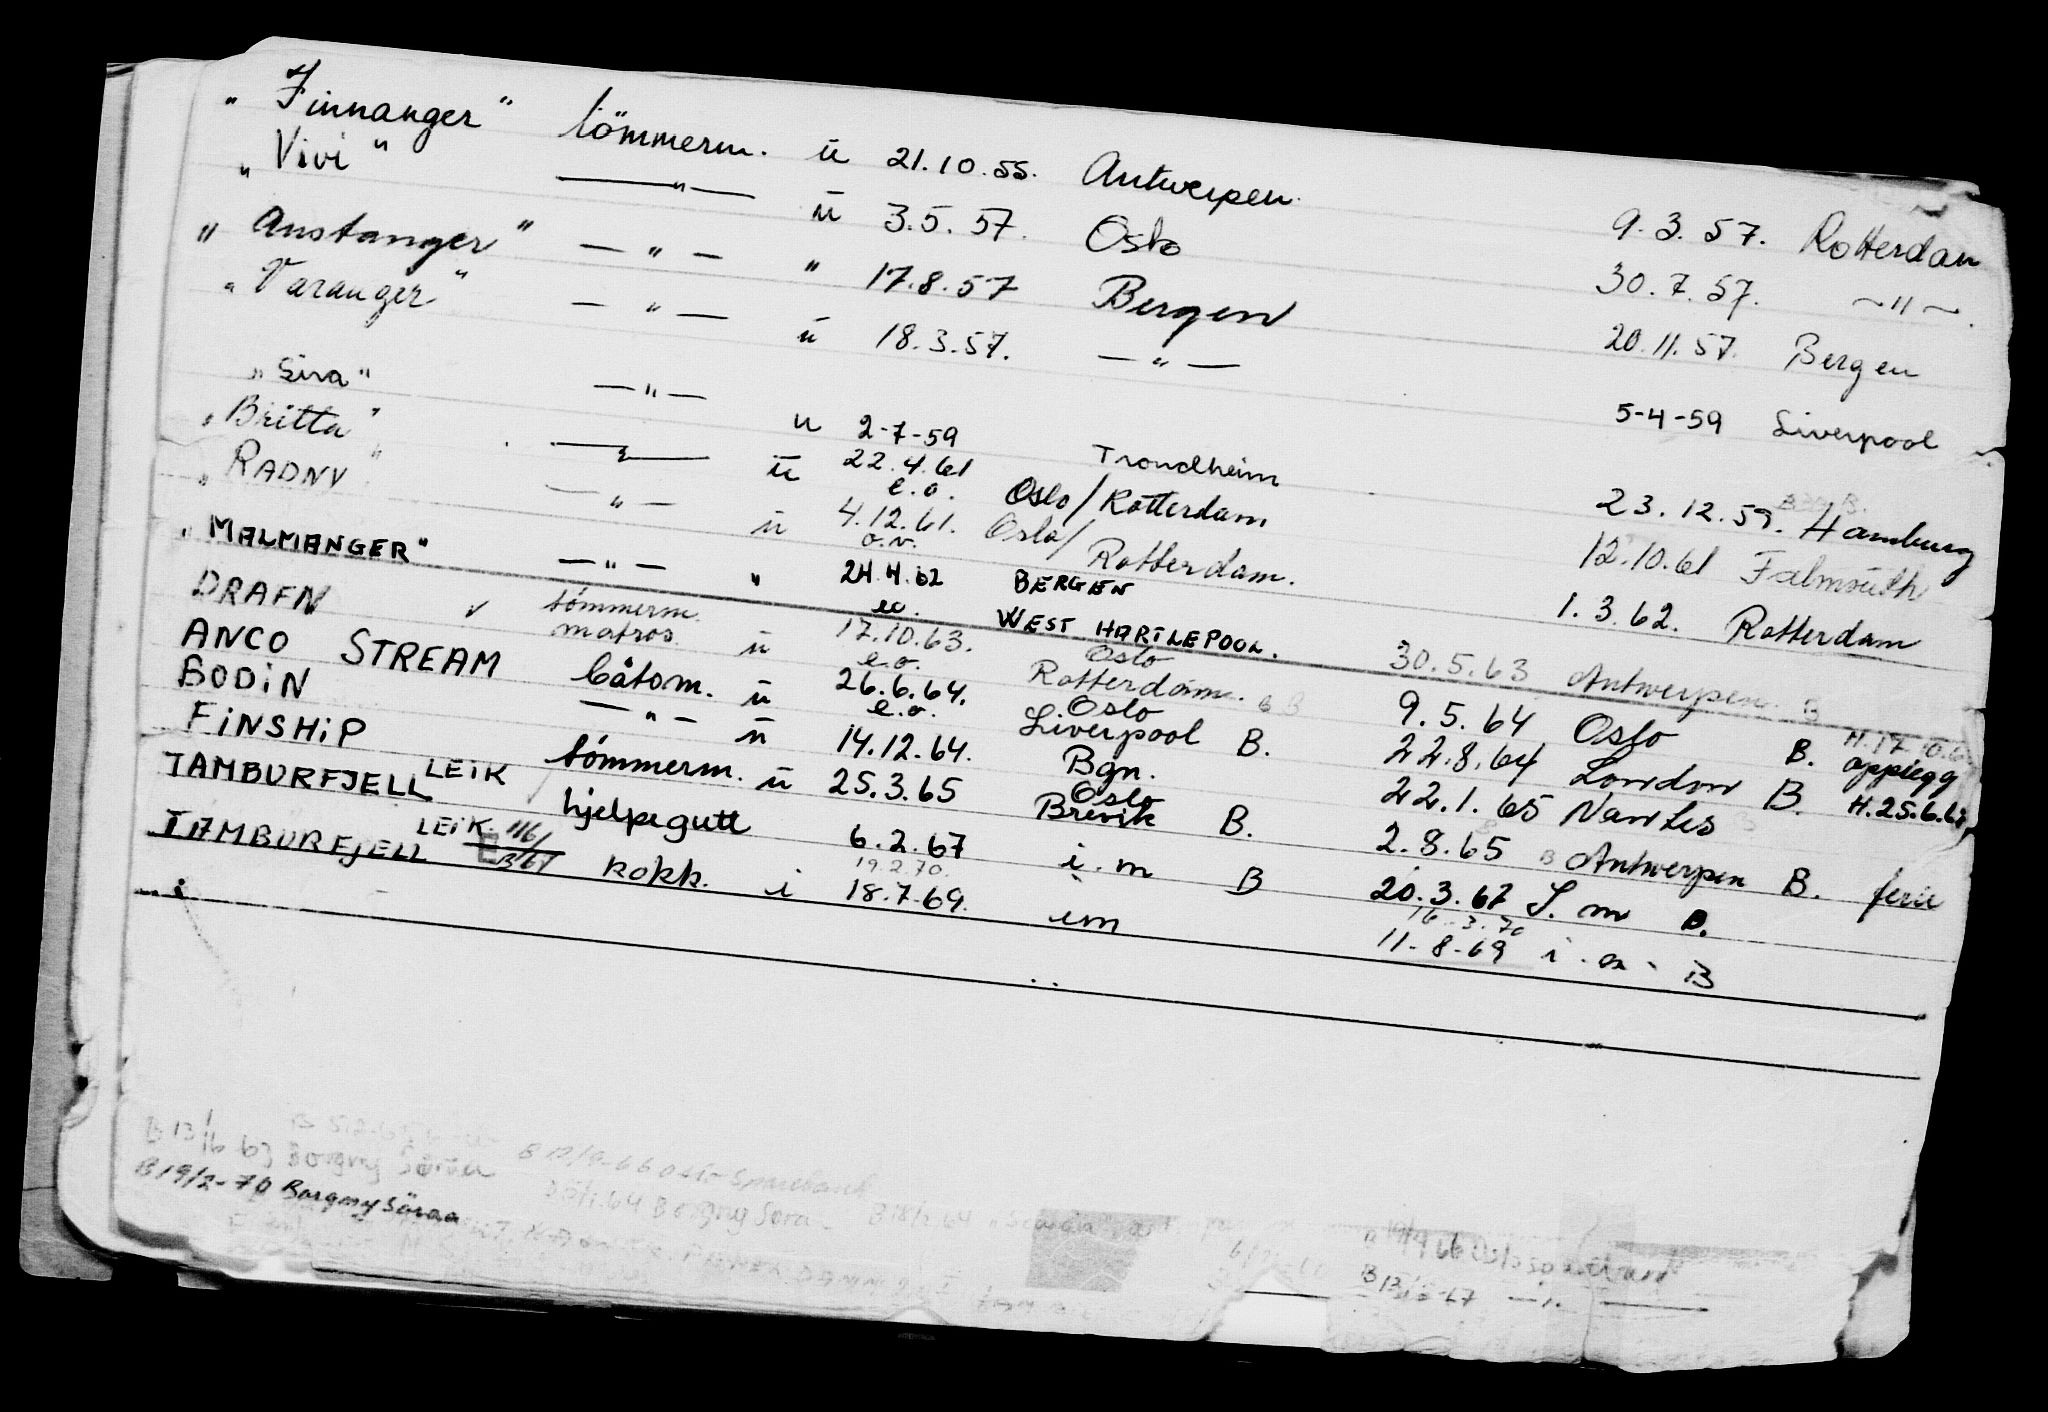 „ Finnanger " tömmerm. ü 21.10.55. Antwerpen. 9.3.57. Rotterdam
„ Vivi " — " — ü 3.5.57. Oslo 30.7.57. ~ " ~.
" Austanger " — " — " 17.8.57 Bergen 20.11.57. Bergen
" Varanger " — " — ü 18.3.57. — " — 5-4-59 Liverpool
„ Sira " — " — u 2-7-59 Trondheim 23.12.59. Hamburg
„ Britta " — " — ü 22.4.61 e.o. Oslo/Rotterdam 12.10.61 Falmouth
„ RADNY — " — ü 4.12.61. o.v. Oslo/Rotterdam. 1.3.62. Rotterdam
" MALMANGER" — " — " 24.4.62 eo. BERGEN WEST HARTLEPOOL. 30.5.63 Antwerpen. B
DRAFN v tömmerm. matros. ü 17.10.63. e.o. Oslo Rotterdam. B 9.5.64 Oslo B. opplegg
ANCO STREAM båtsm. ü 26.6.64. e.o. Oslo Liverpool B. 22.8.64 London B. H.25.6.
BODiN — " — ü 14.12.64. Bgn. 22.1.65 Nantes
FiNSHiP tömmerm. ü 25.3.65 Oslo Brevik B. 2.8.65 B Antwerpen B. ferie
TAMBURFJELL LEiK hjelpegutt 6.2.67 i.m B 20.3.67 S.m B.
19.2.70. 16.3.70
TAMBURFJELL LEiK. kokk. i 18.7.69. im 11-8-69 i.m. B
B 13/16 63 Borgny Söraa
B 19/2-70 Borgny Söraa
64 Borgny Sora B 18/2 64
B 19/9 66 Oslo
B 13/3-67 — " —